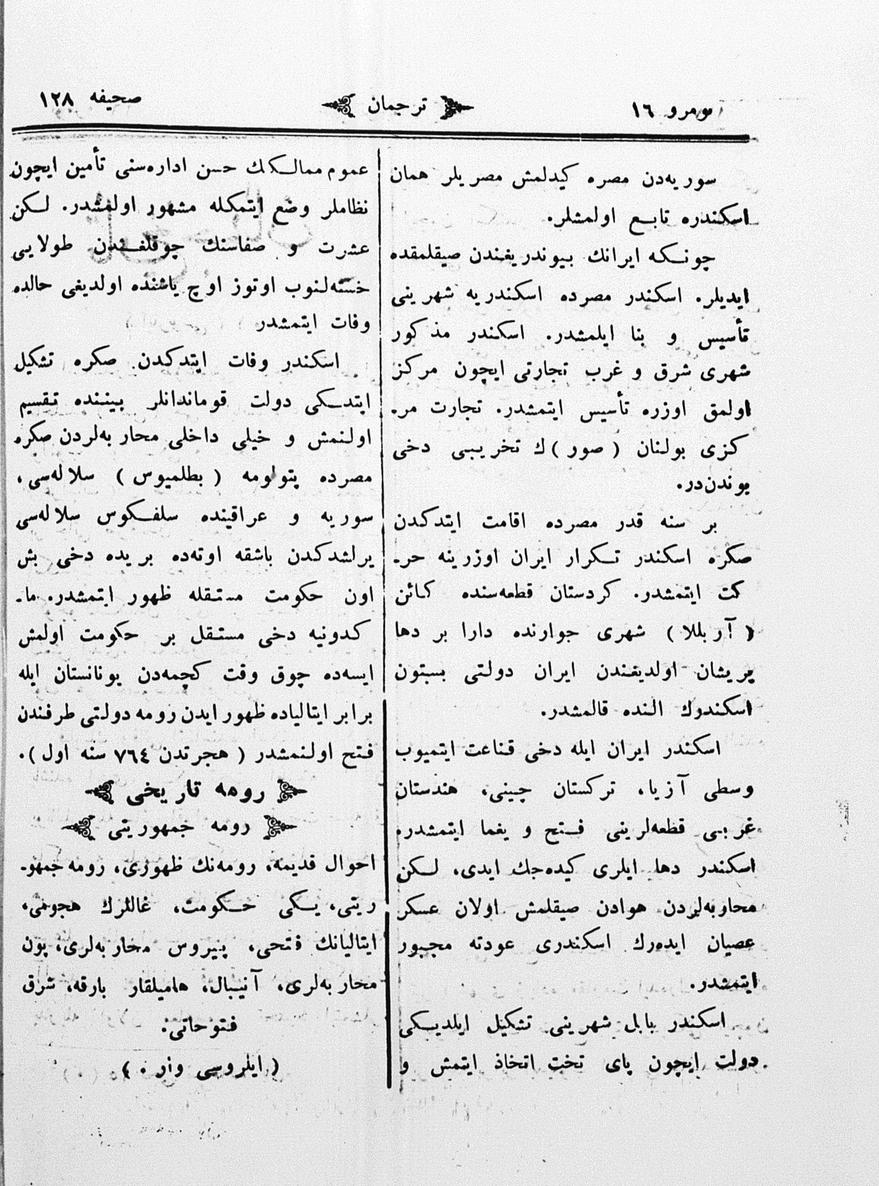 نومرو ١٦
ترجمان
صحيفه ١٢٨
سوريه‌دن مصره كيدلمش مصريلر همان
اسكندره تابع اولمشلر.
چونكه ايرانك بيوندريغندن صيقلمقده
ايديلر. اسكندر مصرده اسكندريه شهرينى
تأسيس و بنا ايلمشدر. اسكندر مذكور
شهرى شرق و غرب تجارتى ايچون مركز
اولمق اوزره تأسيس ايتمشدر. تجارت مر-
كزى بولنان (صور)ك تخريبى دخى
بوندن‌در.
بر سنه قدر مصرده اقامت ايتدكدن
صكره اسكندر تكرار ايران اوزرينه حر-
كت ايتمشدر. كردستان قطعه‌سنده كائن
(آربللا) شهرى جوارنده دارا بر دها
پريشان اولديغندن ايران دولتى بسبتون
اسكندرك النده قالمشدر.
اسكندر ايران ايله دخى قناعت ايتميوب
وسطى آزيا، تركستان چينى، هندستان
غربى قطعه‌لرينى فتح و يغما ايتمشدر.
اسكندر دها ايلرى كيده‌جك ايدى، لكن
محاربه‌لردن هوادن صيقلمش اولان عسكر
عصيان ايده‌رك اسكندرى عودته مجبور
ايتمشدر.
اسكندر بابل شهرينى تشكيل ايلديكى
دولت ايچون پاى تخت اتخاذ ايتمش و
عموم ممالكك حسن اداره‌سنى تأمين ايچون
نظاملر وضع ايتمكله مشهور اولمشدر. لكن
عشرت و صفاسنك چوقلغندن طولايى
خسته‌لنوب اوتوز اوچ ياشنده اولديغى حالده
وفات ايتمشدر
اسكندر وفات ايتدكدن صكره تشكيل
ايتدكى دولت قوماندانلر بيننده تقسيم
اولنمش و خيلى داخلى محاربه‌لردن صكره
مصرده پتولومه (بطلميوس) سلاله‌سى،
سوريه و عراقينده سلفكوس سلاله‌سى
يرلشدكدن باشقه اوته‌ده بريده دخى بش
اون حكومت مستقله ظهور ايتمشدر. ما-
كدونيه دخى مستقل بر حكومت اولمش
ايسه‌ده چوق وقت كچمه‌دن يونانستان ايله
برابر ايتالياده ظهور ايدن رومه دولتى طرفندن
فتح اولنمشدر (هجرتدن ٧٦٤ سنه اول).
رومه تاريخى
رومه جمهوريتى
احوال قديمه، رومه‌نك ظهورى، رومه جمهو-
ريتى، يكى حكومت، غاللرك هجومى،
ايتاليانك فتحى، پيروس محاربه‌لرى، پون
محاربه‌لرى، آنيبال، هاميلقار بارقه، شرق
فتوحاتى.
(ايلروسى وار.)